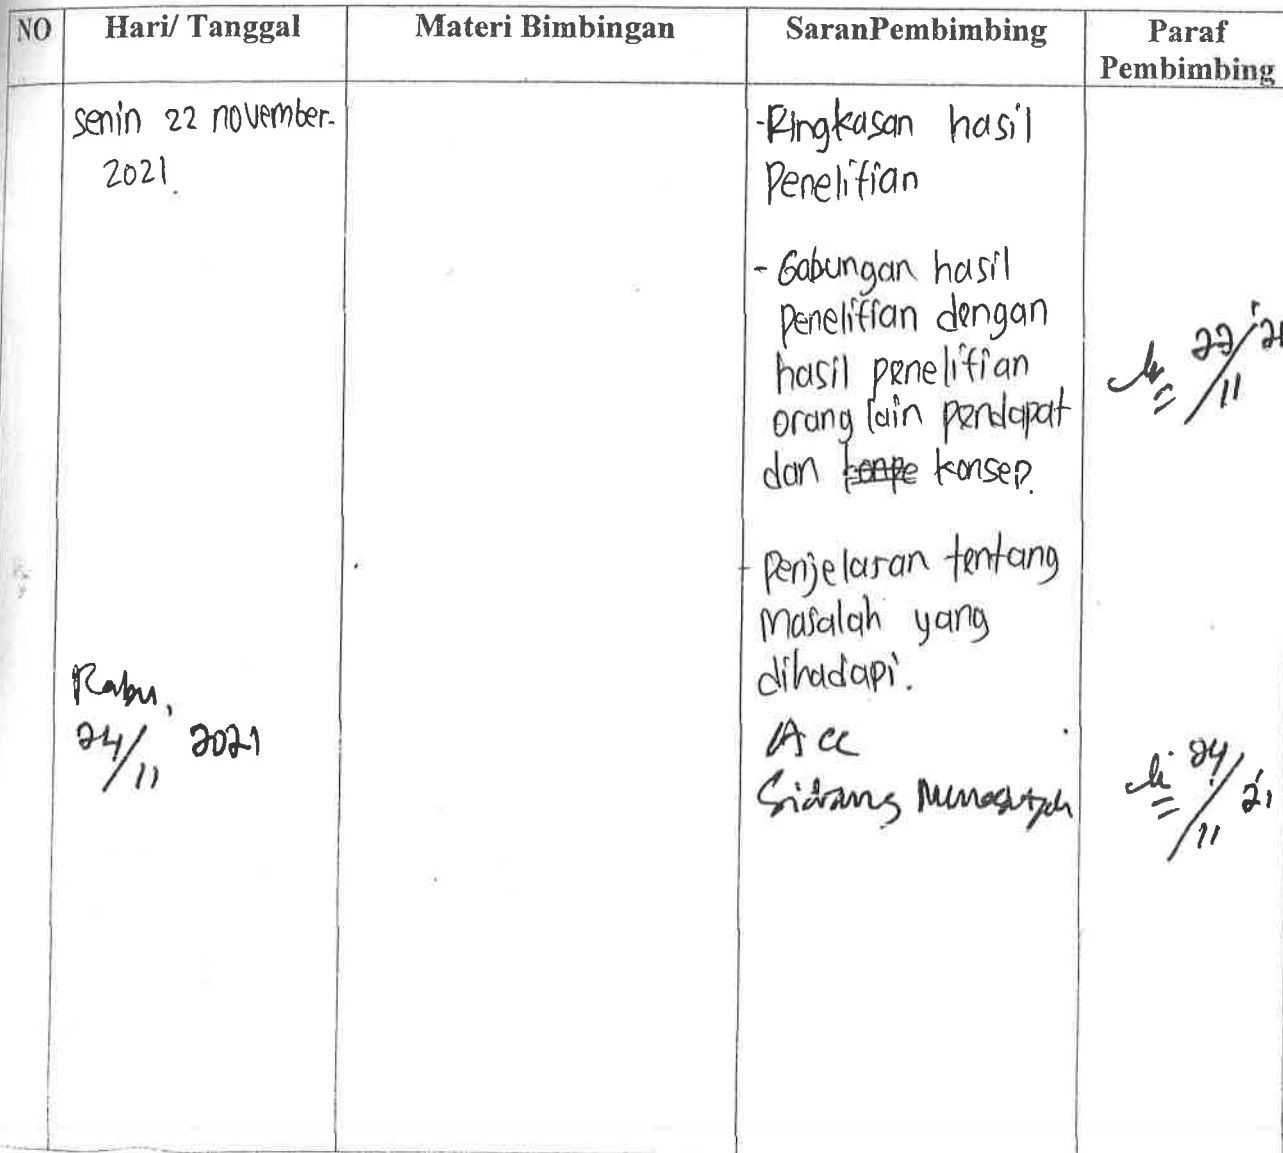 NO Hari/ Tanggal Materi Bimbingan SaranPembimbing Paraf
Pembimbing
senin 22 november.
2021.
-Ringkasan hasil
Penelitian
- Gabungan hasil
penelitian dengan
hasil penelitian
orang lain pendapat
dan konpe konsep.
22/11 '21
- Penjelasan tentang
Masalah yang
dihadapi.
Rabu,
24/11 2021
Acc
Sidang Munaqasyah
24/11 '21